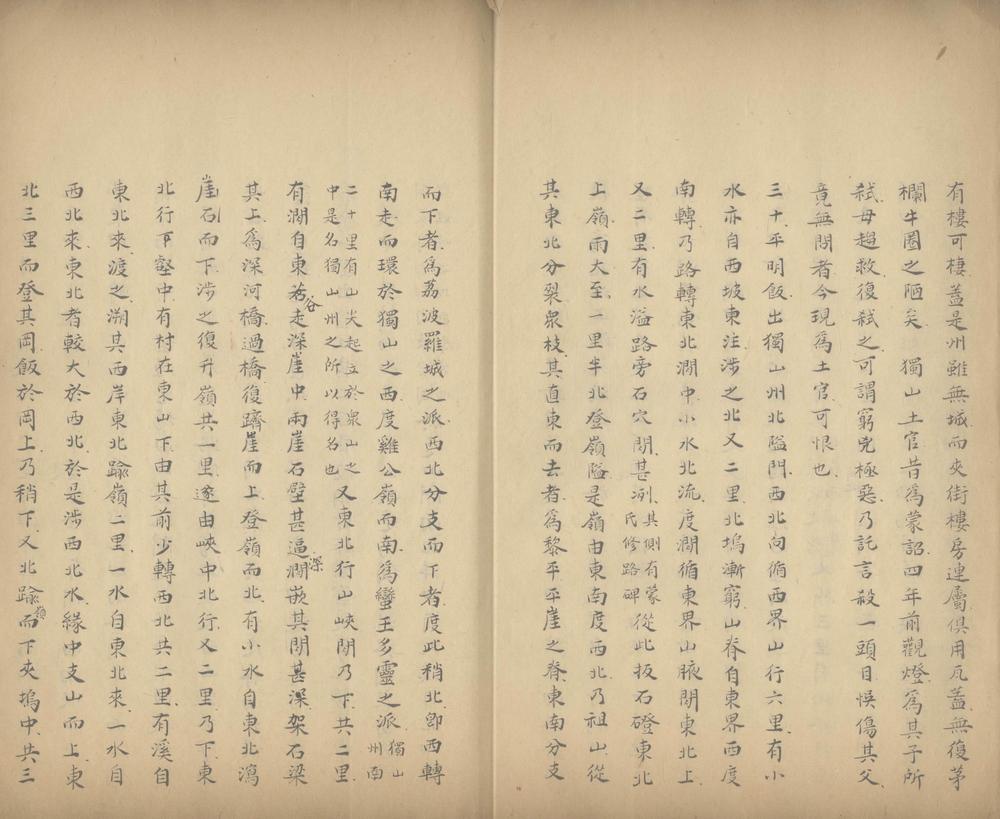 有樓可棲蓋是州雖無城而夾街樓房連屬俱用瓦蓋無復茅
欄牛圈之陋矣　獨山土官昔為蒙詔四年前觀燈為其子所
弒母趨救復弒之可謂窮兇極惡乃託言殺一頭目悞傷其父
竟無問者今現為土官可恨也
三十平明飯出獨山州北隘門西北向循西界山行六里有小
水亦自西坡東注涉之北又二里北塢漸窮山脊自東界西度
南轉乃路轉東北澗中小水北流度澗循東界山腋間東北上
又二里有水溢路旁石穴間甚冽其側有蒙氏修路碑從此扳石磴東北
上嶺雨大至一里半北登嶺隘是嶺由東南度西北乃祖山從
其東北分裂眾枝其直東而去者為黎平平崖之脊東南分支
而下者為荔波羅城之派西北分支而下者度此稍北即西轉
南走而環於獨山之西度雞公嶺而南為蠻王多靈之派獨山州南
二十里有山尖起立於眾山之中是名獨山州之所以得名也又東北行山峽間乃下共二里
有澗自東谷走深崖中兩崖石壁甚逼澗嵌其間甚深架石梁
其上為深河橋過橋復躋崖而上登嶺而北有小水自東北瀉
崖石而下涉之復升嶺共一里遂由峽中北行又二里乃下東
北行下壑中有村在東山下由其前少轉西北共二里有溪自
東北來渡之溯其西岸東北踰嶺二里一水自東北來一水自
西北來東北者較大於西北於是涉西北水緣中支山而上東
北三里而登其岡飯於岡上乃稍下又北踰嶺而下夾塢中共三